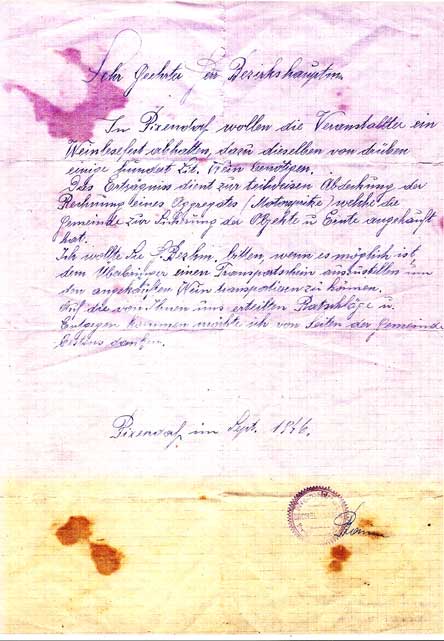 Sehr Geehrter Herr Bezirkshauptm.
In Pixendorf wollen die Veranstallter ein
Weinlesefest abhalten, dazu dieselben von drüben
einige hundert Lit. Wein benötigen.
Das Erträgniss dient zur teilweisen Abdeckung der
Rechnung eines Aggregates (Motorspritze) welche die
Gemeinde zur Sicherung der Objekte u. Ernte angekauft
hat.
Ich wollte die Bezhm. bitten, wenn es möglich ist,
dem Überbringer einen Transportschein auszustellen um
den angekauften Wein transportieren zu können.
Auf die von Ihnen uns erteilten Ratschläge u.
Entgegen kommen möchte ich von Seiten der Gemeinde
bestens danken.
Pixendorf, im Sept. 1946.